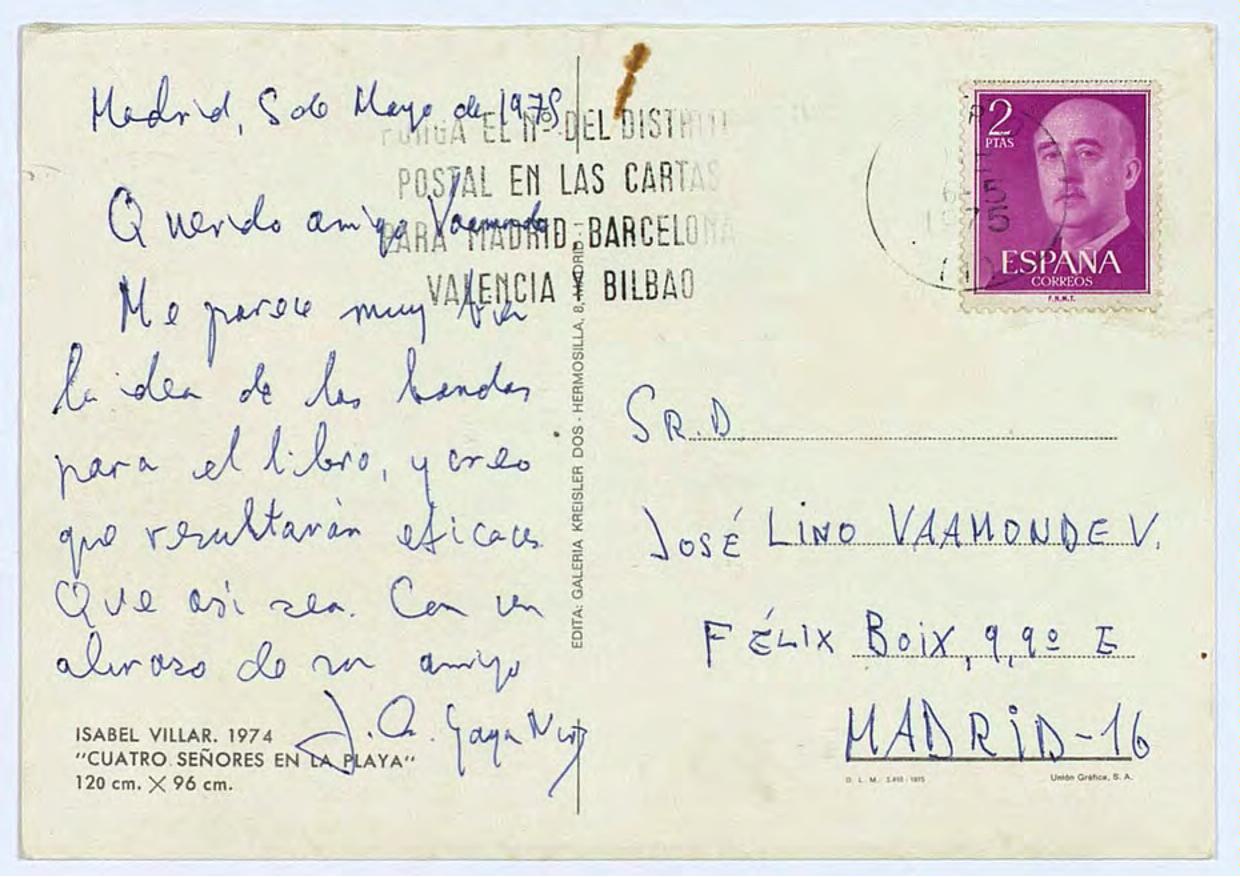 Madrid, 5 de Mayo de 1975
PONGA EL Nº DEL DISTRITO
POSTAL EN LAS CARTAS
PARA MADRID, BARCELONA
VALENCIA Y BILBAO
Querido amigo Vaamonde
Me parece muy bien
la idea de las bandas
para el libro, y creo
que resultarán eficaces.
Que así sea. Con un
abrazo de su amigo
J. A. Gaya Nuño
ISABEL VILLAR. 1974
"CUATRO SEÑORES EN LA PLAYA"
120 cm. X 96 cm.
EDITA: GALERIA KREISLER DOS - HERMOSILLA, 8. MADRID-1
2
PTAS
ESPAÑA
CORREOS
F.N.M.T.
1975
SR. D.
JOSÉ LINO VAAMONDE V.
FÉLIX BOIX, 9, 9º E
MADRID-16
D. L. M. 1975
Unión Gráfica, S. A.